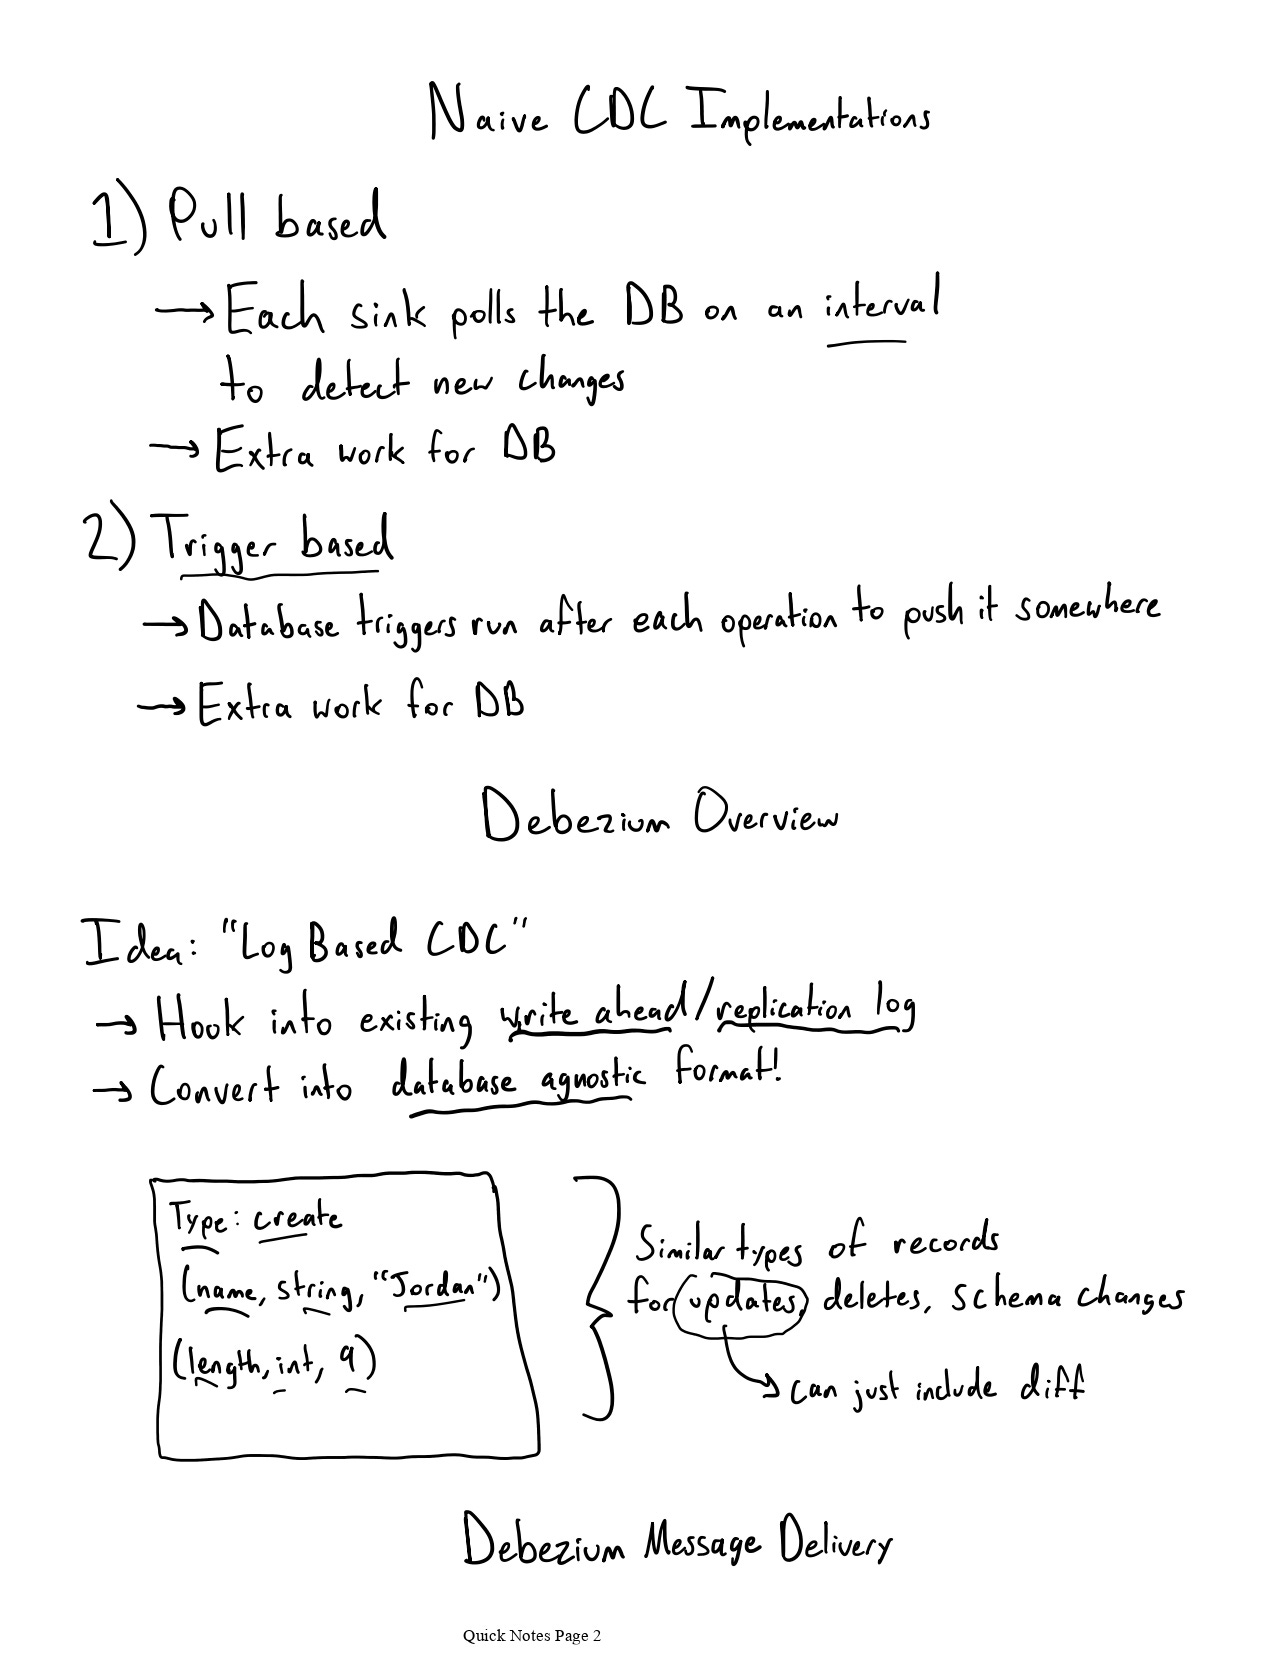 Naive CDC Implementations
1) Pull based
→ Each sink polls the DB on an interval
to detect new changes
→ Extra work for DB
2) Trigger based
→ Database triggers run after each operation to push it somewhere
→ Extra work for DB
Debezium Overview
Idea: "Log Based CDC"
→ Hook into existing write ahead/replication log
→ Convert into database agnostic format!
Type: create
(name, string, "Jordan")
(length, int, 9)
Similar types of records
for updates, deletes, schema changes
→ can just include diff
Debezium Message Delivery
Quick Notes Page 2